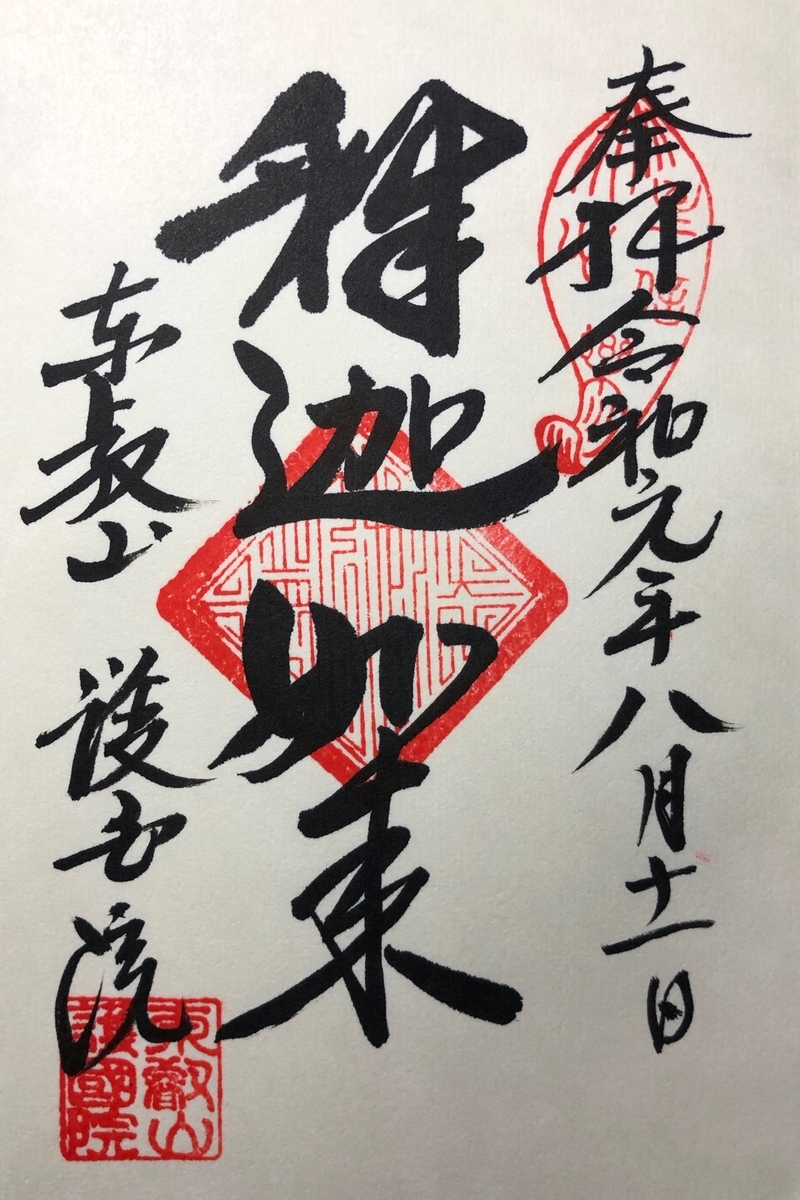 奉拝 令和元年八月十一日
釋迦如来
東叡山 護国院
東叡山
護國院